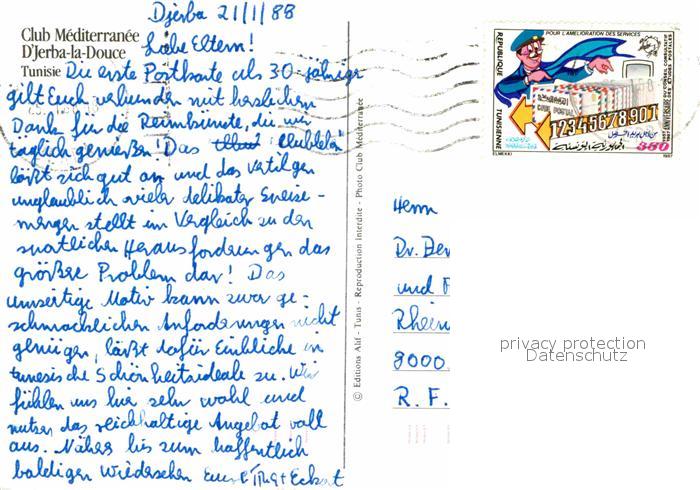 Djerba 21/1/88
Club Méditerranée
D'Jerba-la-Douce
Tunisie
Liebe Eltern!
Die erste Postkarte als 30-jähriger
gilt Euch verbunden mit herzlichem
Dank für die die wir
täglich genießen! Das Clubleben
läßt sich gut an und das Vertilgen
unglaublich vieler delikater Speise-
mengen stellt im Vergleich zu den
sportlichen Herausforderungen das
größere Problem dar! Das
umseitige Motiv kann zwar ge-
schmacklichen Anforderungen nicht
genügen, läßt dafür Einblicke in
tunesische Schönheitsideale zu. Wir
fühlen uns hier sehr wohl und
nutzen das reichhaltige Angebot voll
aus. Näheres bis zum hoffentlich
baldigen Wiedersehen Eckart
© Editions Alif - Tunis - Reproduction Interdite - Photo Club Méditerranée
REPUBLIQUE TUNISIENNE
POUR L'AMELIORATION DES SERVICES
CODE POSTAL
1234567890
الجمهورية التونسية
350
1987
Herrn
Dr. Ber
und F
Rhein
8000
R. F.
privacy protection
Datenschutz